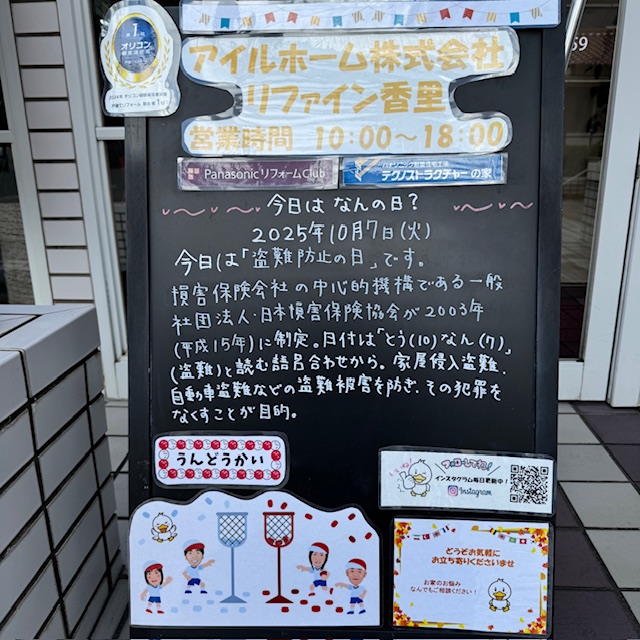 第1位
オリコン
アイルホーム株式会社
リファイン香里
営業時間 10:00～18:00
Panasonic リフォームClub
パナソニック耐震住宅工法
テクノストラクチャーの家
今日は なんの日?
2025年10月7日(火)
今日は「盗難防止の日」です。
損害保険会社の中心的機構である一般
社団法人・日本損害保険協会が2003年
(平成15年)に制定。日付は「とう(10)なん(7)」
(盗難)と読む語呂合わせから。家屋侵入盗難、
自動車盗難などの盗難被害を防ぎ、その犯罪を
なくすことが目的。
うんどうかい
フォローしてね!
インスタグラム毎日更新中!
Instagram
どうぞお気軽に
お立ち寄りくださいませ
お家のお悩み
なんでもご相談ください!
59